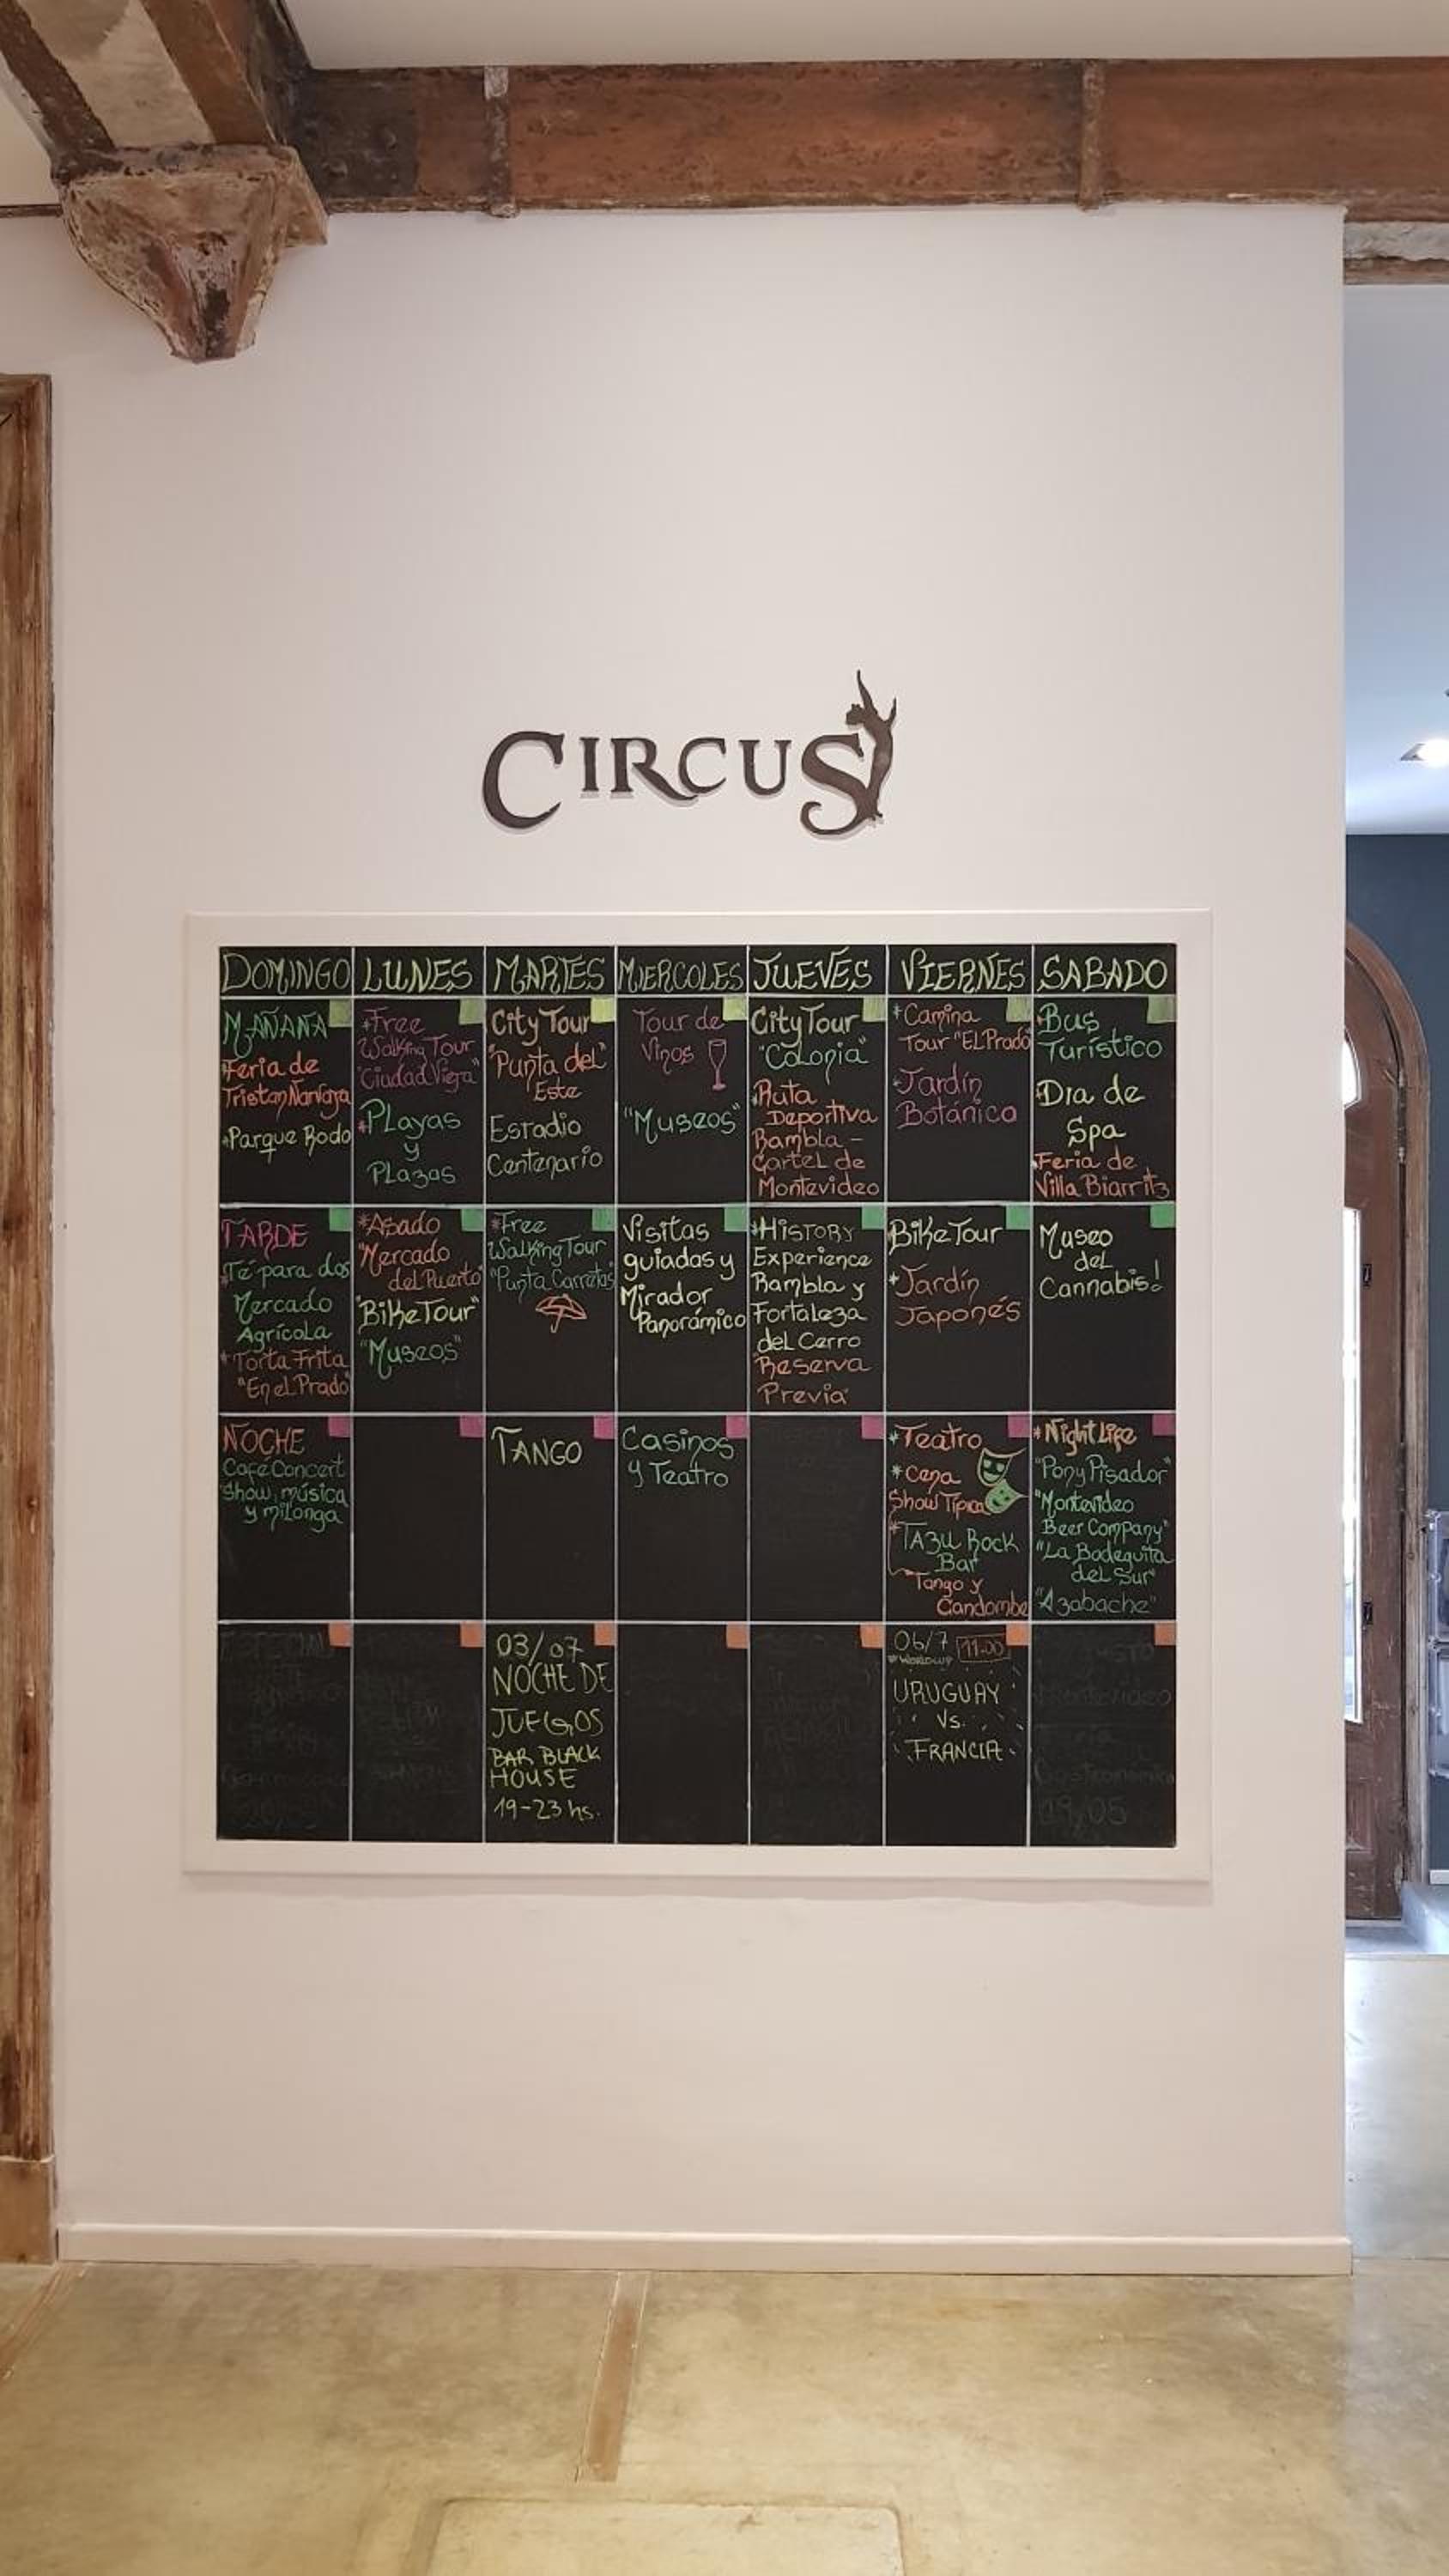 CIRCUS
DOMINGO LUNES MARTES MIERCOLES JUEVES VIERNES SABADO
MAÑANA
*Feria de
Tristan Narvaja
*Parque Rodo
*Free
Walking Tour
"Ciudad Vieja"
*Playas
y
Plazas
City Tour
"Punta del"
Este
Estadio
Centenario
Tour de
Vinos
"Museos"
City Tour
"Colonia"
*Ruta
Deportiva
Rambla -
Cartel de
Montevideo
*Camina
Tour "EL Prado
*Jardín
Botánica
*Bus
Turístico
*Dia de
Spa
*Feria de
Villa Biarritz
TARDE
*Té para dos
Mercado
Agrícola
*Torta Frita
"En el Prado"
*Asado
"Mercado
del Puerto"
"Bike Tour"
"Museos"
*Free
Walking Tour
"Punta Carretas"
Visitas
guiadas y
Mirador
Panorámico
*HISTORY
Experience
Rambla y
Fortaleza
del Cerro
"Reserva
Previa"
Bike Tour
*Jardín
Japonés
Museo
del
Cannabis!
NOCHE
Café Concert
Show, música
y milonga
TANGO
Casinos
y Teatro
*Teatro
*cena
Show Típico
*TAZU Rock
Bar
Tango y
Candombe
*Night Life
"Pony Pisador"
"Montevideo
Beer Company"
"La Bodeguita
del Sur"
"Azabache"
03/07
NOCHE DE
JUEGOS
BAR BLACK
HOUSE
19-23 hs.
06/7 11:00
URUGUAY
Vs.
FRANCIA